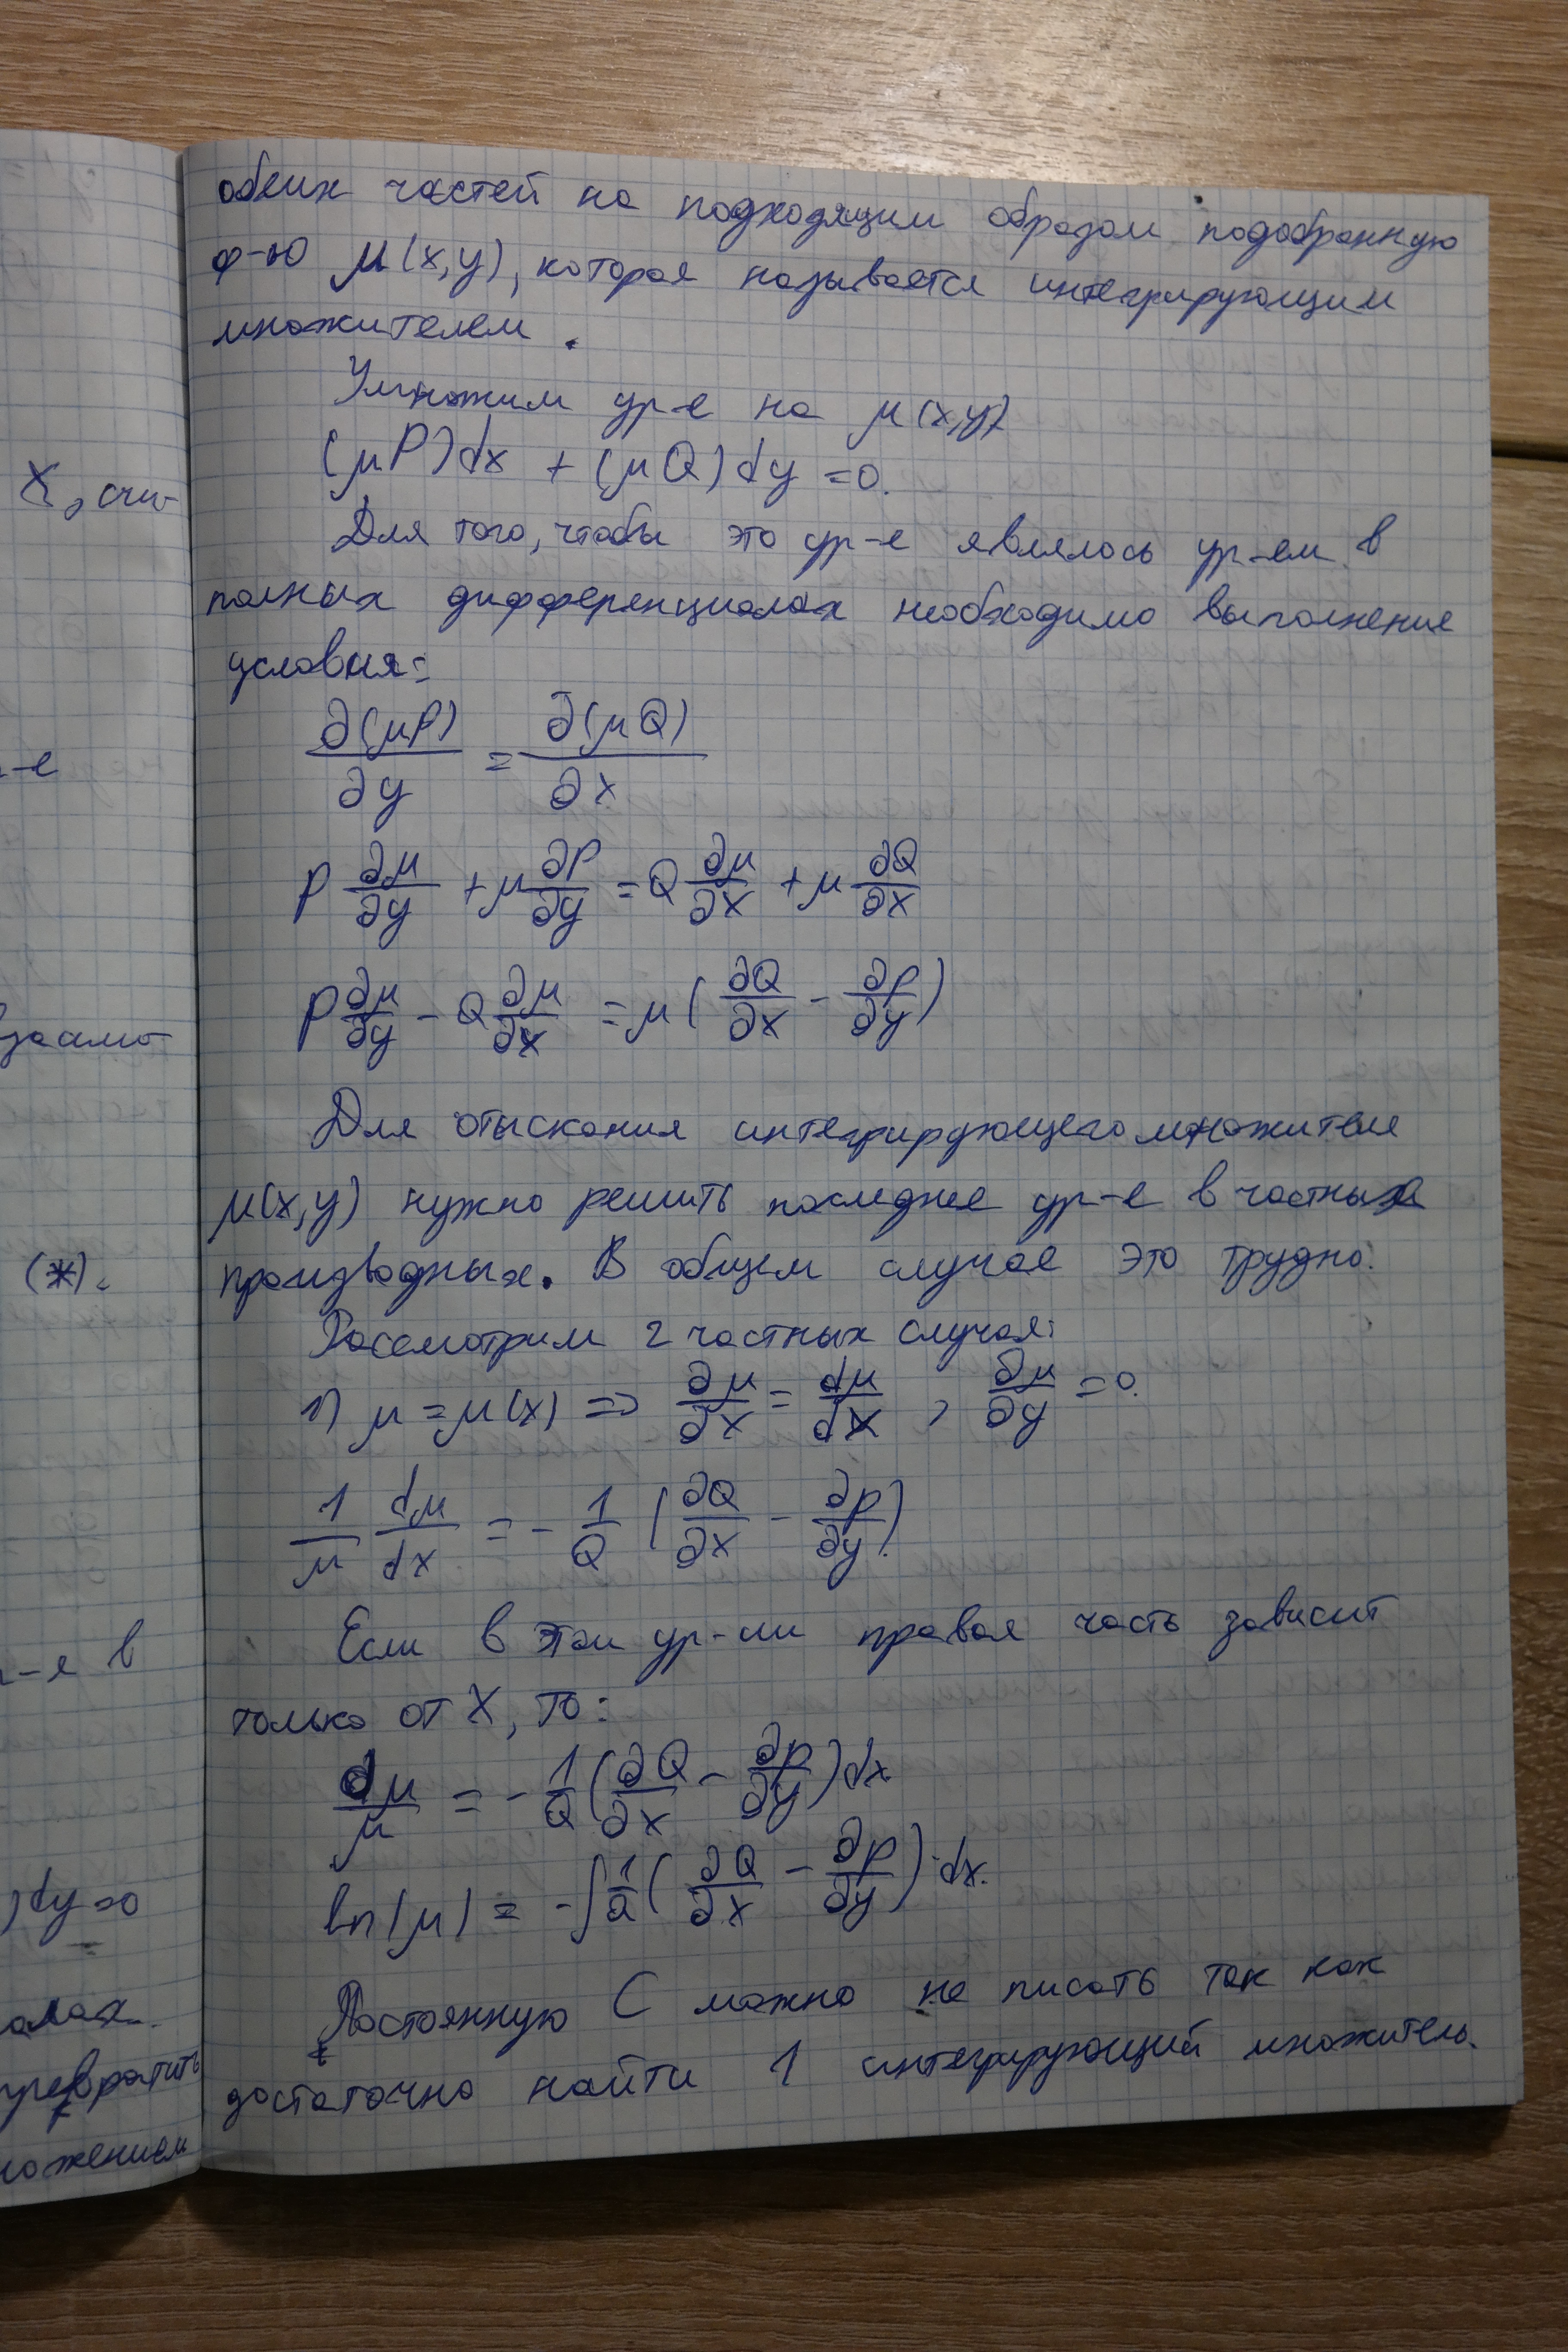 X, счи-
-е
(*).
-я в
) dy = 0
алах.
превратить
ножением
обеих частей на подходящим образом подобранную
ф-ю μ(x,y), которая называется интегрирующим
множителем.
Умножим ур-е на μ(x,y)
(μP)dx + (μQ)dy = 0.
Для того, чтобы это ур-е являлось ур-ем в
полных дифференциалах необходимо выполнение
условия:
∂(μP)/∂y = ∂(μQ)/∂x
P ∂μ/∂y + μ ∂P/∂y = Q ∂μ/∂x + μ ∂Q/∂x
P ∂μ/∂y - Q ∂μ/∂x = μ(∂Q/∂x - ∂P/∂y)
Для отыскания интегрирующего множителя
μ(x,y) нужно решить последнее ур-е в частных
производных. В общем случае это трудно.
Рассмотрим 2 частных случая:
1) μ = μ(x) => ∂μ/∂x = dμ/dx , ∂μ/∂y = 0.
1/μ dμ/dx = - 1/Q (∂Q/∂x - ∂P/∂y)
Если в этом ур-ии правая часть зависит
только от X, то:
dμ/μ = - 1/Q (∂Q/∂x - ∂P/∂y) dx
ln|μ| = - ∫ 1/Q (∂Q/∂x - ∂P/∂y) · dx.
Постоянную C можно не писать так как
достаточно найти 1 интегрирующий множитель.